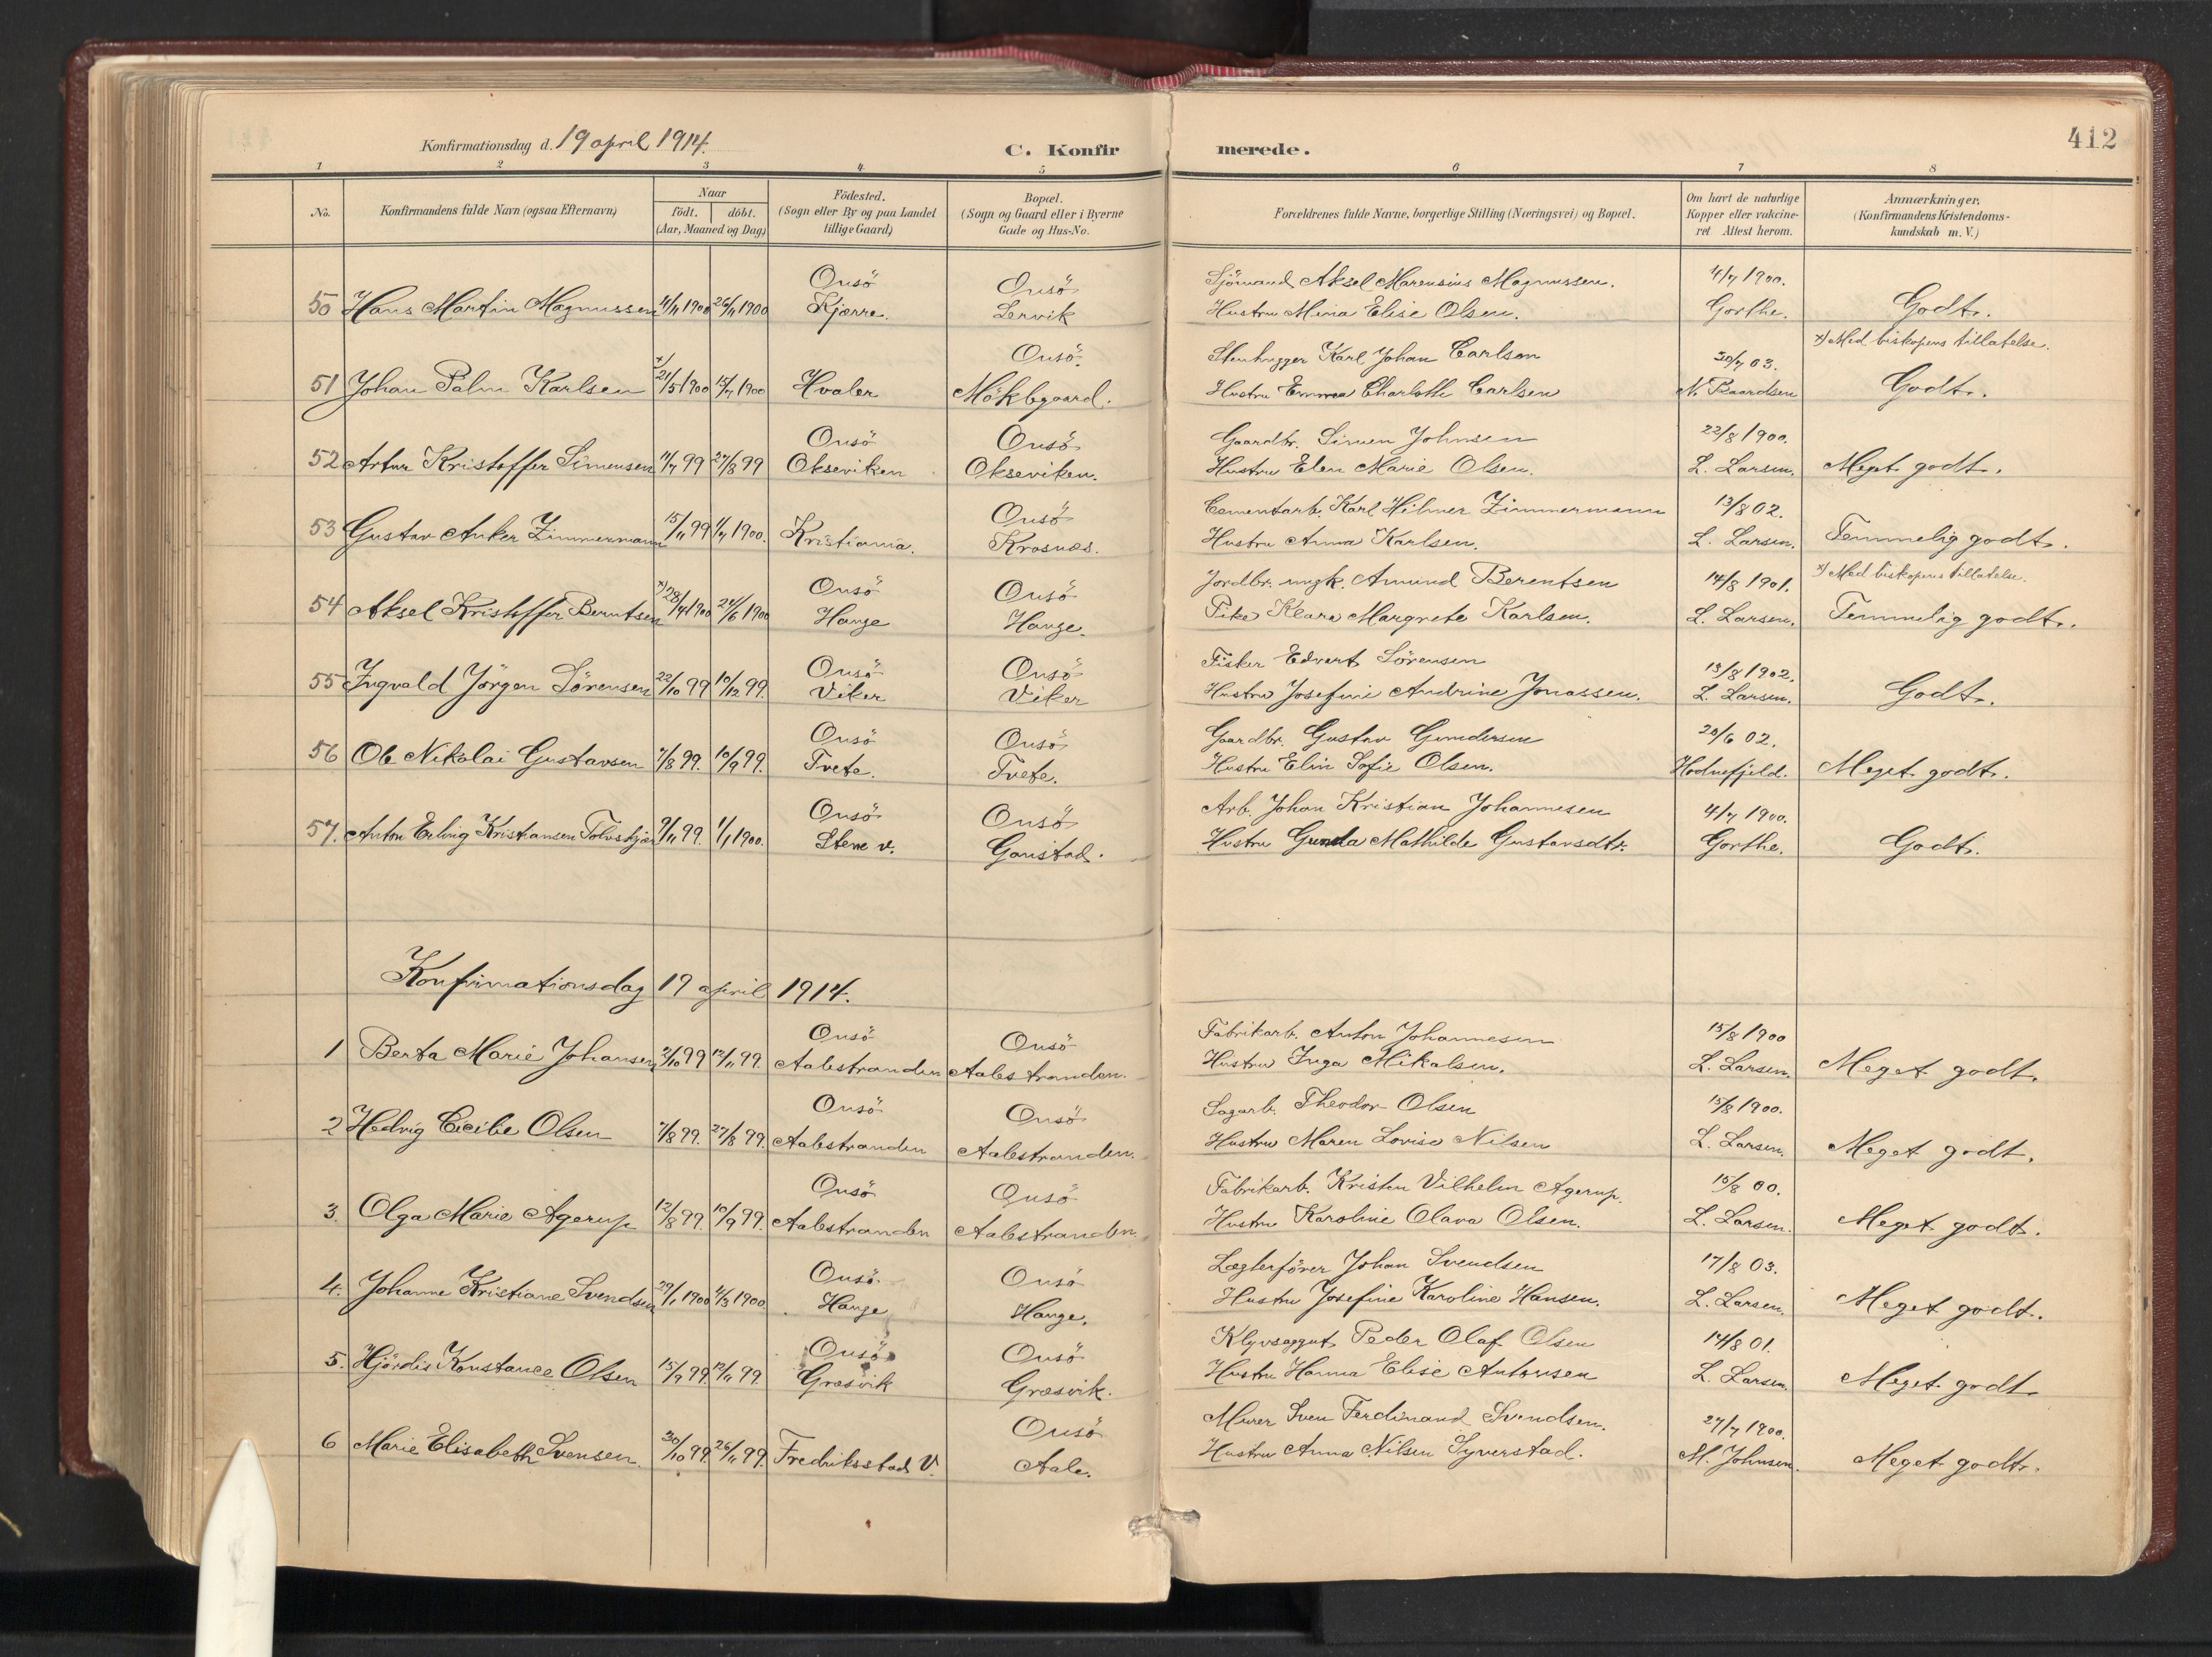 Konfirmationsdag d. 19 april 1914.
C. Konfirmerede.
412
1 2 3 4 5 6 7 8
No.
Konfirmandens fulde Navn (ogsaa Efternavn)
Naar
födt. | döbt.
(Aar, Maaned og Dag)
Födested.
(Sogn eller By og paa Landet
tillige Gaard)
Bopæl.
(Sogn og Gaard eller i Byerne
Gade og Hus-No.
Forældrenes fulde Navne, borgerlige Stilling (Næringsvei) og Bopæl.
Om havt de naturlige
Kopper eller vakcine-
ret Attest herom.
Anmærkninger,
(Konfirmandens Kristendoms-
kundskab m. V.)
Onsö Onsö Sjömand Aksel Marensius Magnussen. 4/7 1900.
50 Hans Martin Magnussen 4/11 1900 26/11 1900 Kjærre. Lervik Hustru Mina Elise Olsen. Gorthe. Godt.
Onsö Stenhugger Karl Johan Carlson 30/7 03. x) Med biskopens tillatelse.
51 Johan Palm Karlsen x) 21/5 1900 15/7 1900 Hvaler Mökbegaard. Hustru Emma Charlotte Carlsen N. Baardsen Godt.
Onsö Onsö Gaardbr. Simen Johnsen 22/8 1900.
52 Artur Kristoffer Simensen 11/7 99 27/8 99 Okseviken Okseviken. Hustru Elen Marie Olsen. L. Larsen. Meget godt.
Onsö Cementarb. Karl Hilmer Zimmermann 13/8 02.
53 Gustav Anker Zimmermann 15/11 99 1/7 1900. Kristiania. Krosnæs. Hustru Anna Karlsen. L. Larsen. Temmelig godt.
Onsö Onsö Jordbr. ungk. Amund Berentsen 14/8 1901. x) Med biskopens tillatelse.
54 Aksel Kristoffer Berntsen x) 28/4 1900 24/6 1900 Hauge Hauge. Pike Klara Margrete Karlsen. L. Larsen. Temmelig godt.
Onsö Onsö Fisker Edvart Sörensen 13/8 1902.
55 Ingvald Jörgen Sörensen 22/10 99 10/12 99. Viker Viker Hustru Josefine Andrine Jonassen. L. Larsen. Godt.
Onsö Onsö Gaardbr. Gustav Gundersen 20/6 02.
56 Ole Nikolai Gustavsen 7/8 99. 10/9 99. Tvete. Tvete. Hustru Elin Sofie Olsen. Hodnefjeld. Meget godt.
Onsö Onsö Arb. Johan Kristian Johannesen 4/7 1900.
57. Anton Erling Kristiansen 9/11 99. 1/1 1900. Stene v. Gaustad. Hustru Gunda Mathilde Gustavsdtr. Gorthe. Godt.
Konfirmationsdag 19 april 1914.
Onsö Onsö Fabrikarb. Anton Johannesen 15/8 1900
1 Berta Marie Johansen 2/10 99 12/11 99. Aalestranden Aalestranden. Hustru Inga Mikalsen. L. Larsen. Meget godt.
Onsö Onsö Sagarb. Theodor Olsen 15/8 1900.
2 Hedvig Cicilie Olsen 7/8 99. 27/8 99. Aalestranden Aalestranden. Hustru Maren Lovise Nilsen L. Larsen. Meget godt.
Onsö Onsö Fabrikarb. Kristen Vilhelm Agerup. 15/8 00.
3. Olga Marie Agerup 12/8 99. 10/9 99. Aalestranden Aalestranden. Hustru Karoline Olava Olsen. L. Larsen. Meget godt.
Onsö Onsö Lægterförer Johan Svendsen 17/8 03.
4. Johanne Kristiane Svendsen 29/1 1900 4/3 1900. Hauge Hauge. Hustru Josefine Karoline Hansen. L. Larsen. Meget godt.
Onsö Onsö Peder Olaf Olsen 14/8 01.
5. Hjördis Konstance Olsen 15/9 99. 12/11 99. Græsvik Græsvik. Hustru Hanna Elise Antonsen L. Larsen. Meget godt
Onsö Murer Sven Ferdinand Svendsen. 27/7 1900.
6 Marie Elisabeth Svensen. 30/10 99. 26/11 99. Fredriksstad V. Aale. Hustru Anna Nilsen Syverstad. M. Johnsen. Meget godt.